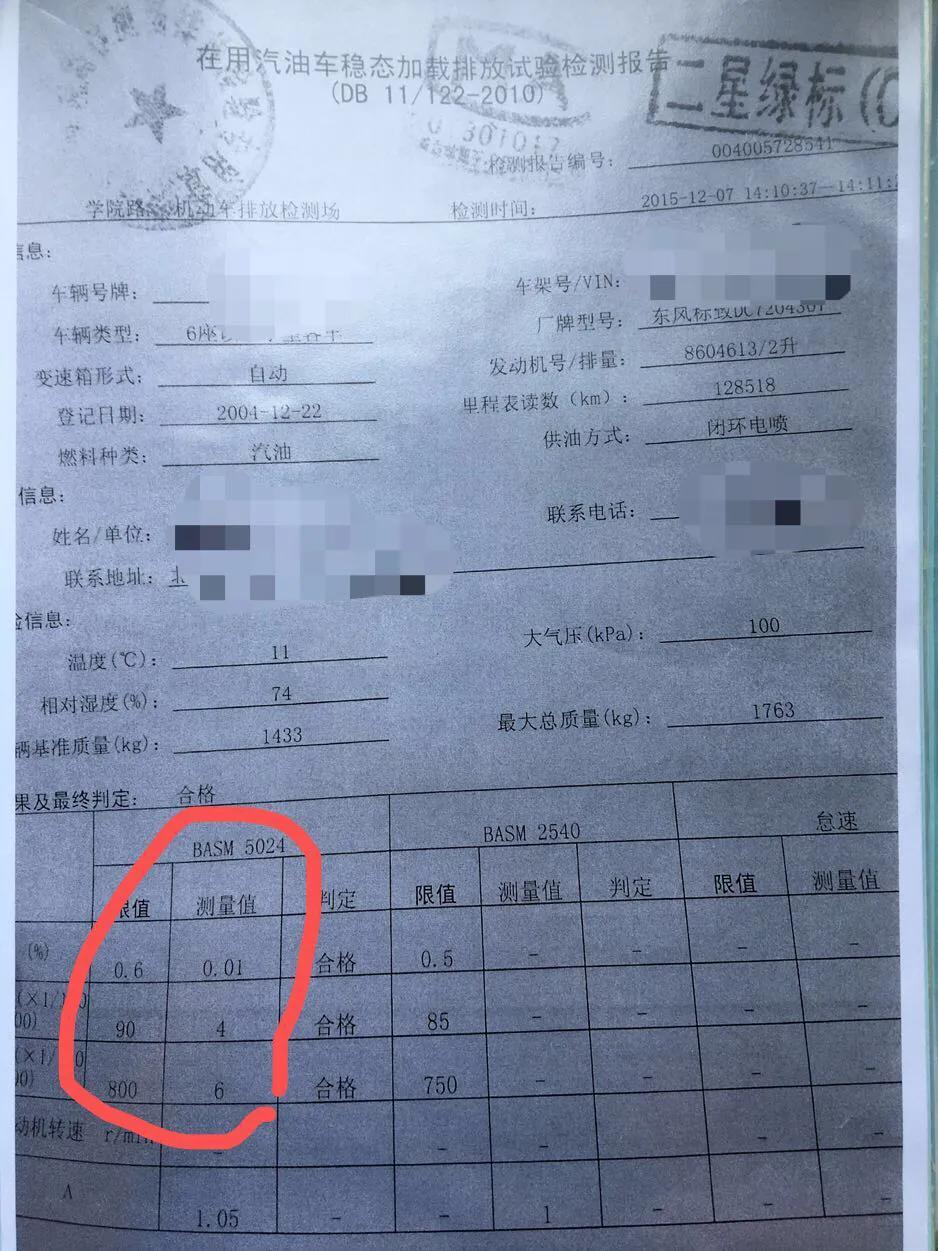 在用汽油车稳态加载排放试验检测报告
(DB 11/122-2010)
二星绿标(C
检测报告编号: 004005728541
学院路 机动车排放检测场 检测时间: 2015-12-07 14:10:37—14:11:
信息:
车辆号牌: 车架号/VIN:
车辆类型: 6座 厂牌型号: 东风标致DC7204
变速箱形式: 自动 发动机号/排量: 8604613/2升
登记日期: 2004-12-22 里程表读数(km): 128518
燃料种类: 汽油 供油方式: 闭环电喷
信息:
姓名/单位: 联系电话:
联系地址: 北
信息:
温度(℃): 11 大气压(kPa): 100
相对湿度(%): 74
辆基准质量(kg): 1433 最大总质量(kg): 1763
果及最终判定: 合格
BASM 5024 BASM 2540 怠速
限值 测量值 判定 限值 测量值 判定 限值 测量值
(%) 0.6 0.01 合格 0.5 - - - -
(×1/ 0
00) 90 4 合格 85 - - - -
(×1/ 0
00) 800 6 合格 750 - - - -
动机转速 r/min - - - - -
Λ 1.05 - - 1 - - -